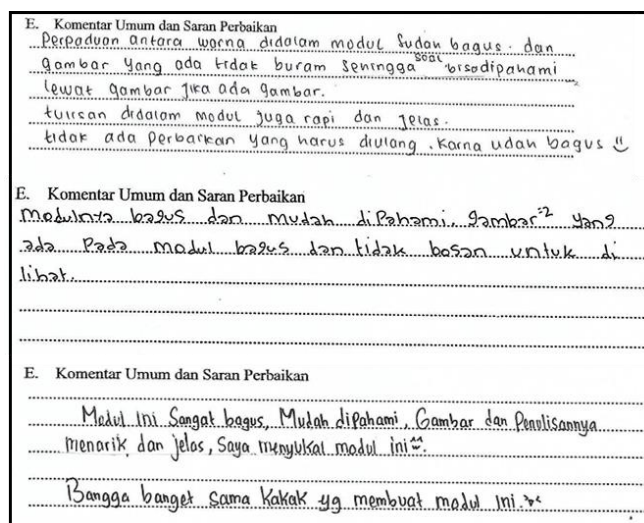 E. Komentar Umum dan Saran Perbaikan
Perpaduan antara warna didalam modul sudah bagus. dan
gambar yang ada tidak buram sehingga soal bisa dipahami
lewat gambar jika ada gambar.
tulisan didalam modul juga rapi dan jelas.
tidak ada perbaikan yang harus diulang. karna udah bagus
E. Komentar Umum dan Saran Perbaikan
Modulnya bagus dan mudah dipahami. gambar-2 yang
ada pada modul bagus dan tidak bosan untuk di
lihat.
E. Komentar Umum dan Saran Perbaikan
Modul ini Sangat bagus, Mudah dipahami, Gambar dan Penulisannya
menarik dan jelas, Saya menyukai modul ini.
Bangga banget sama Kakak yg membuat modul ini.